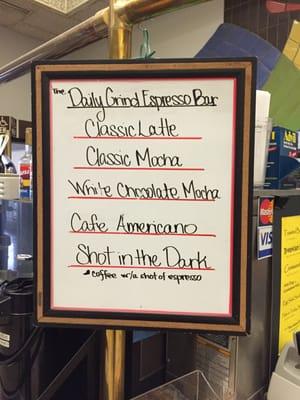 The Daily Grind Espresso Bar
Classic Latte
Classic Mocha
White Chocolate Mocha
Cafe Americano
Shot in the Dark
coffee w/a shot of espresso
MasterCard
VISA
Advil